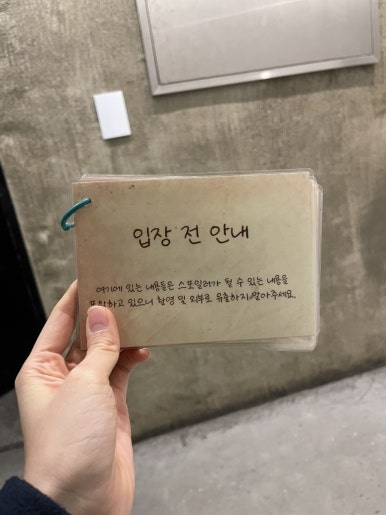 입장 전 안내
여기에 있는 내용들은 스포일러가 될 수 있는 내용을
포함하고 있으니 촬영 및 외부로 유출하지 말아주세요.